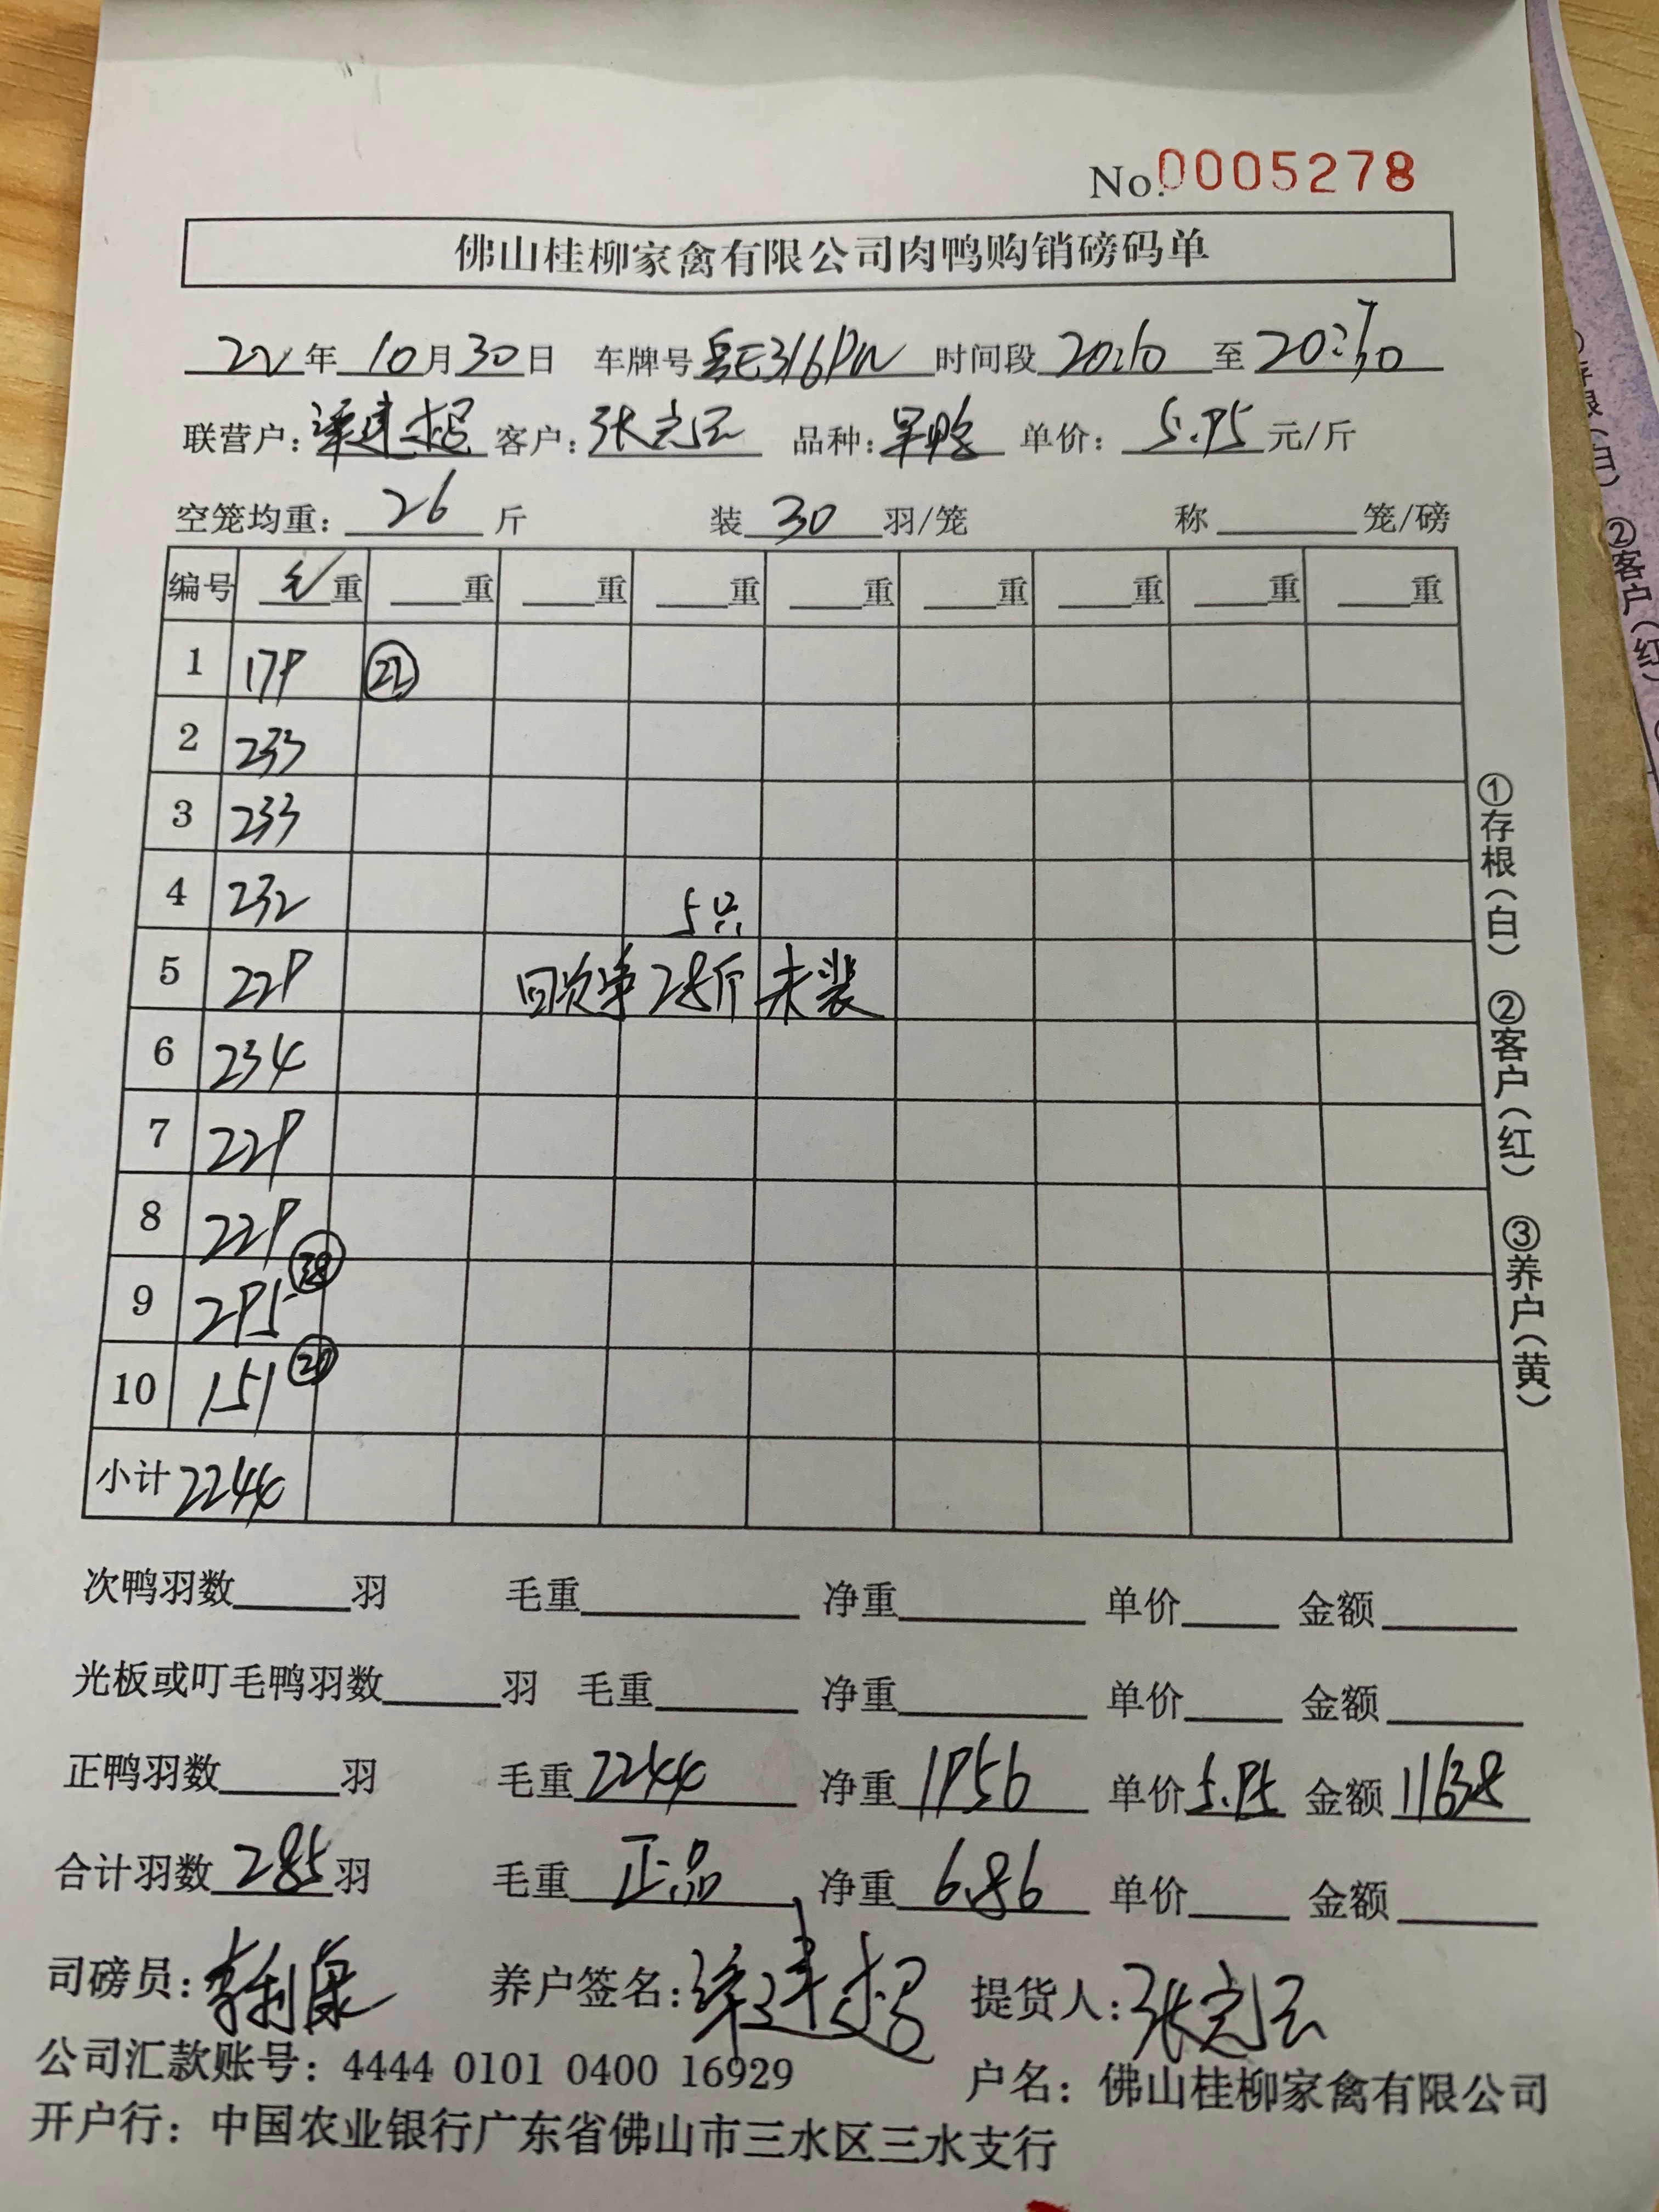 No.0005278
佛山桂柳家禽有限公司肉鸭购销磅码单
22年10月30日 车牌号 粤E316PW 时间段 20:10 至 20:30
联营户: 客户: 张 品种: 单价: 5.95元/斤
空笼均重: 26 斤 装 30 羽/笼 称 笼/磅
编号 毛重 重 重 重 重 重 重 重 重
1 179 22
2 233
3 233
4 232 5只
5 229 回次净28斤 未装
6 234
7 229
8 229
9 295 38
10 151 20
小计 2244
次鸭羽数 羽 毛重 净重 单价 金额
光板或叮毛鸭羽数 羽 毛重 净重 单价 金额
正鸭羽数 羽 毛重 2244 净重 1956 单价 5.95 金额 11638
合计羽数 285 羽 毛重 正品 净重 6.86 单价 金额
司磅员: 李利康 养户签名: 提货人: 张
公司汇款账号: 4444 0101 0400 16929 户名: 佛山桂柳家禽有限公司
开户行: 中国农业银行广东省佛山市三水区三水支行
①存根(白) ②客户(红) ③养户(黄)
②客户(红)